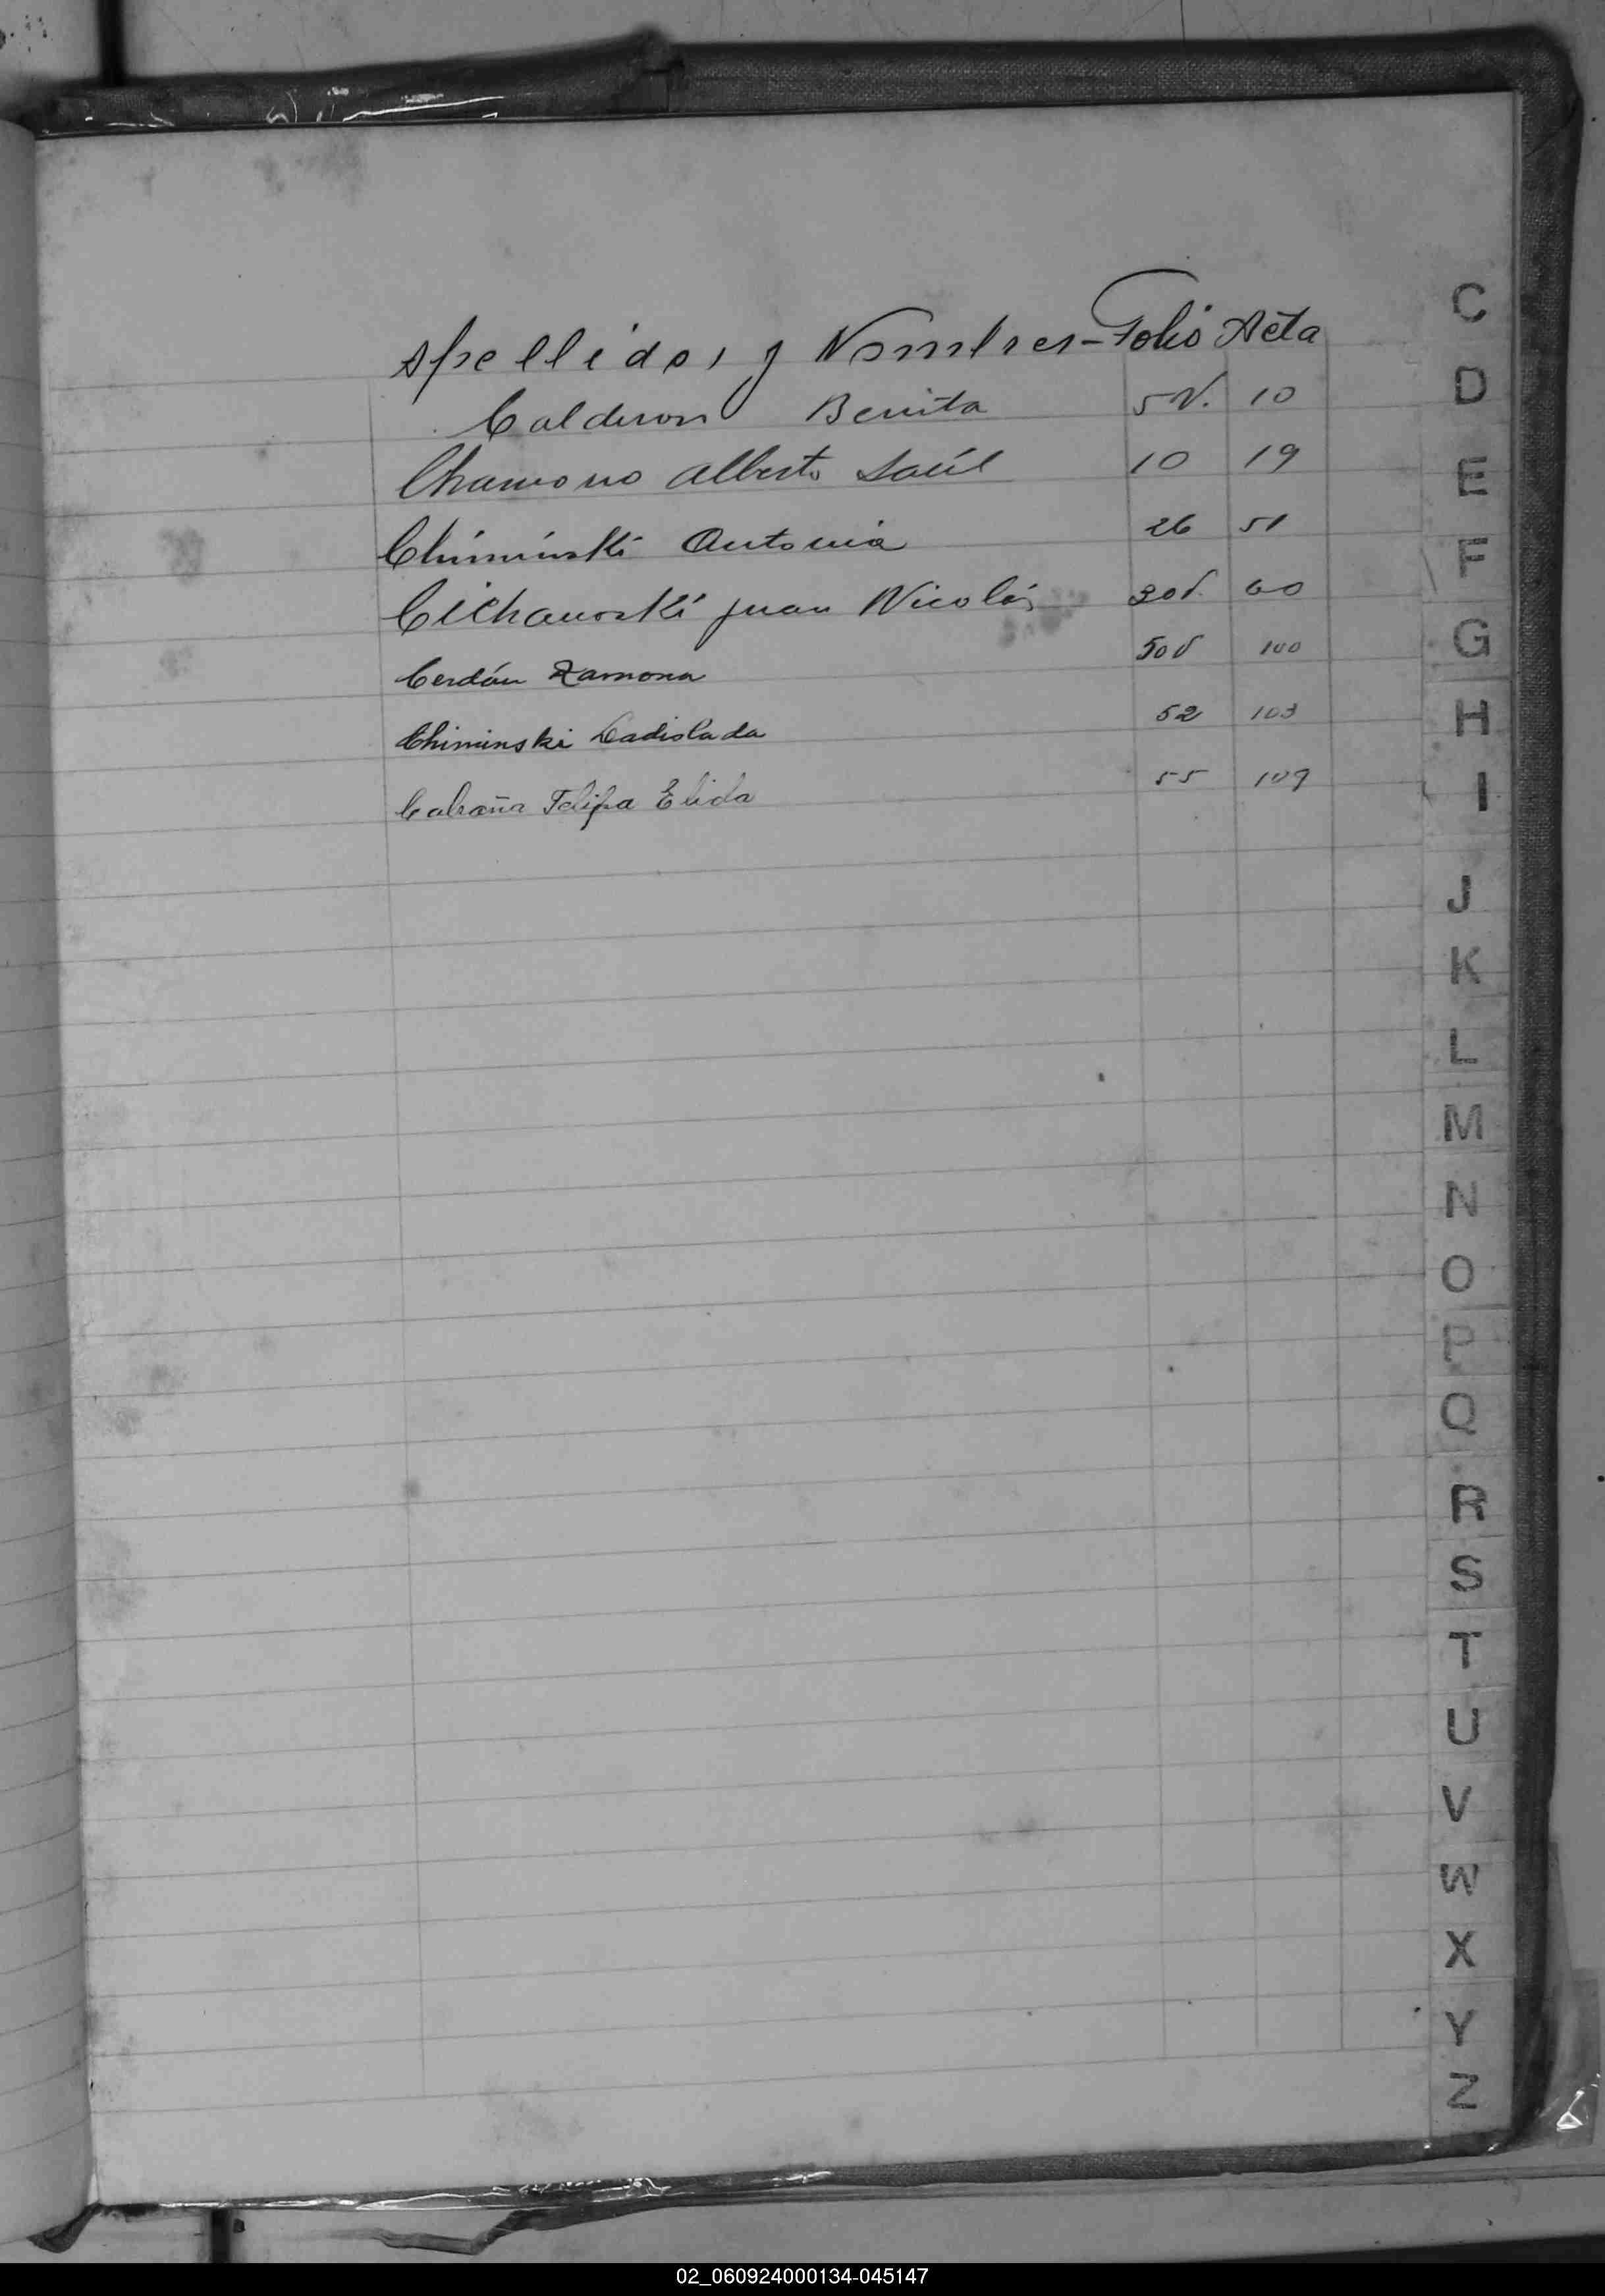 Apellidos y Nombres - Folio Acta
Calderon Benita 5 V. 10
Chamono Alberto Saúl 10 19
Chiminski Antonia 26 51
Cichanoski Juan Nicolás 30 V. 60
Cerdán Ramona 50 V 100
Chiminski Ladislada 52 103
Cabraña Felipa Elida 55 109
C
D
E
F
G
H
I
J
K
L
M
N
O
P
Q
R
S
T
U
V
W
X
Y
Z
02_060924000134-045147